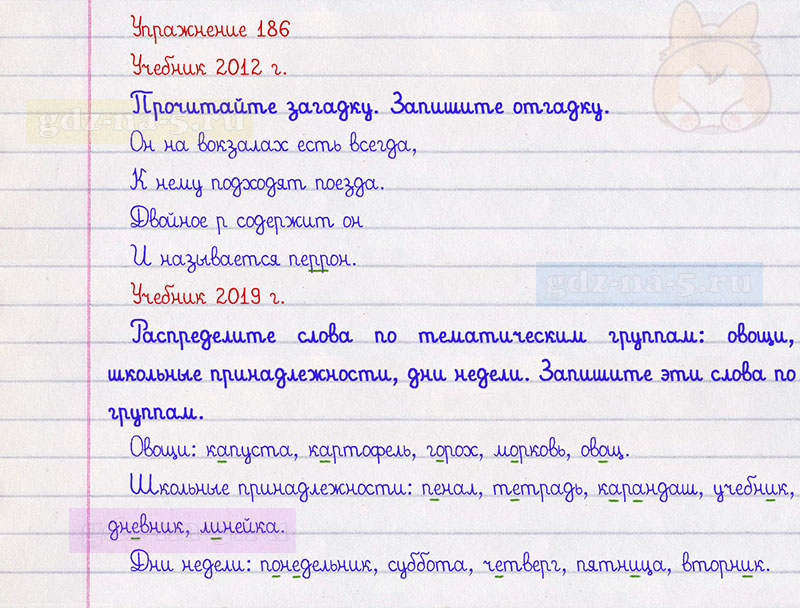 Упражнение 186
Учебник 2012 г.
Прочитайте загадку. Запишите отгадку.
gdz-na-5.ru
Он на вокзалах есть всегда,
К нему подходят поезда.
Двойное р содержит он
И называется перрон.
gdz-na-5.ru
Учебник 2019 г.
Распределите слова по тематическим группам: овощи,
школьные принадлежности, дни недели. Запишите эти слова по
группам.
Овощи: капуста, картофель, горох, морковь, овощ.
Школьные принадлежности: пенал, тетрадь, карандаш, учебник,
дневник, линейка.
Дни недели: понедельник, суббота, четверг, пятница, вторник.